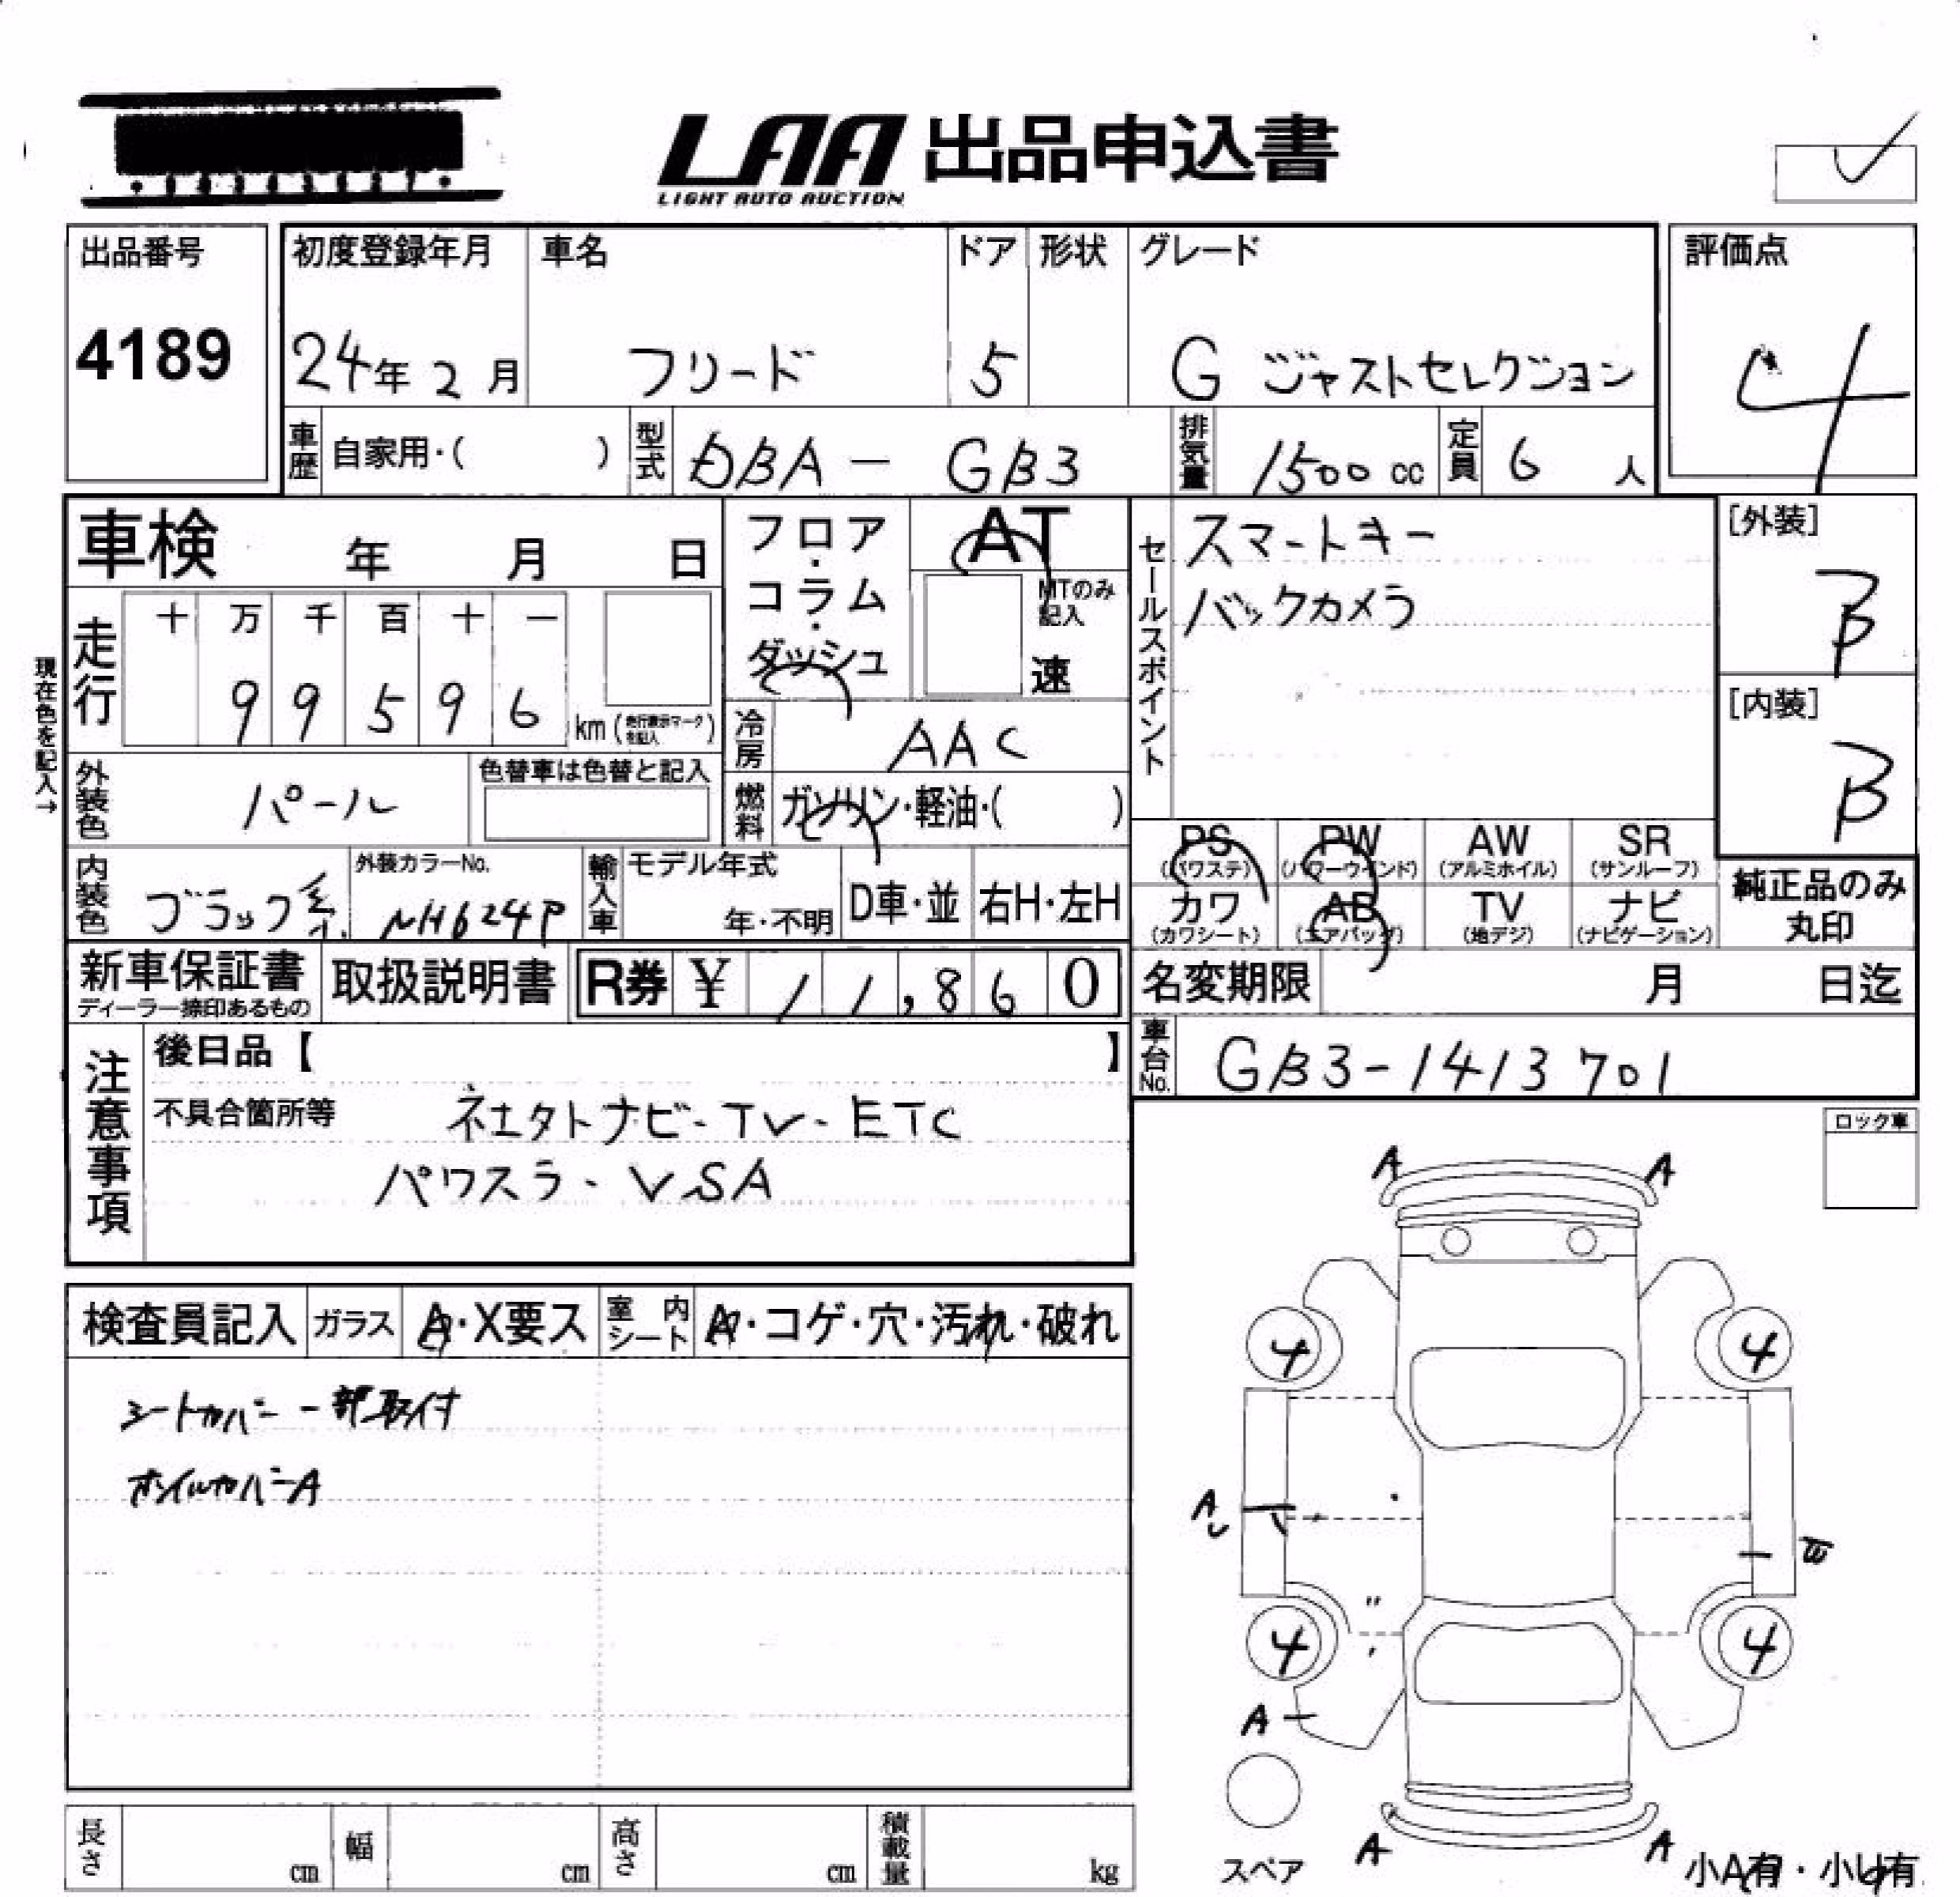 LAA 出品申込書
LIGHT AUTO AUCTION
出品番号
4189
初度登録年月
24年 2月
車名
フリード
ドア
5
形状
グレード
G ジャストセレクション
評価点
4
車歴
自家用・( )
型式
DBA - GB3
排気量
1500 cc
定員
6 人
車検 年 月 日
フロア・コラム・ダッシュ
AT
MTのみ記入
速
セールスポイント
スマートキー
バックカメラ
[外装]
B
[内装]
B
現在色を記入→
走行
十 万 千 百 十 一
9 9 5 9 6
km (走行表示マークを記入)
冷房
AAC
外装色
パール
色替車は色替と記入
燃料
ガソリン・軽油・( )
内装色
ブラック系
外装カラーNo.
NH624P
輸入車
モデル年式
年・不明
D車・並
右H・左H
PS (パワステ)
PW (パワーウインド)
AW (アルミホイル)
SR (サンルーフ)
カワ (カワシート)
AB (エアバッグ)
TV (地デジ)
ナビ (ナビゲーション)
純正品のみ丸印
新車保証書
ディーラー捺印あるもの
取扱説明書
R券 ¥ 11,860
名変期限 月 日迄
車台No.
GB3-1413701
注意事項
後日品【 】
不具合箇所等
ネエタトナビ-TV-ETC
パワスラ-VSA
ロック車
検査員記入
ガラス
A・X要ス
室内シート
A・コゲ・穴・汚れ・破れ
シートカバー一部取付
ホイルカバーA
A A
4 4
A
4 4
A
スペア
A A
小A有・小U有
長さ cm
幅 cm
高さ cm
積載量 kg